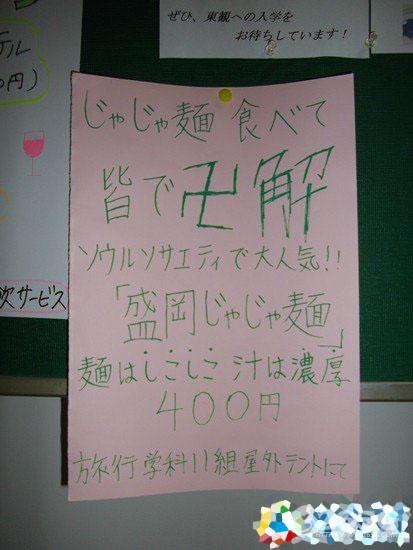 ぜひ、東観への入学を
お待ちしています!
じゃじゃ麺 食べて
皆で卍解
ソウルソサエティで大人気!!
「盛岡じゃじゃ麺」
麺はしこしこ 汁は濃厚
400円
旅行学科11組屋外テントにて
テル
0円)
次サービス